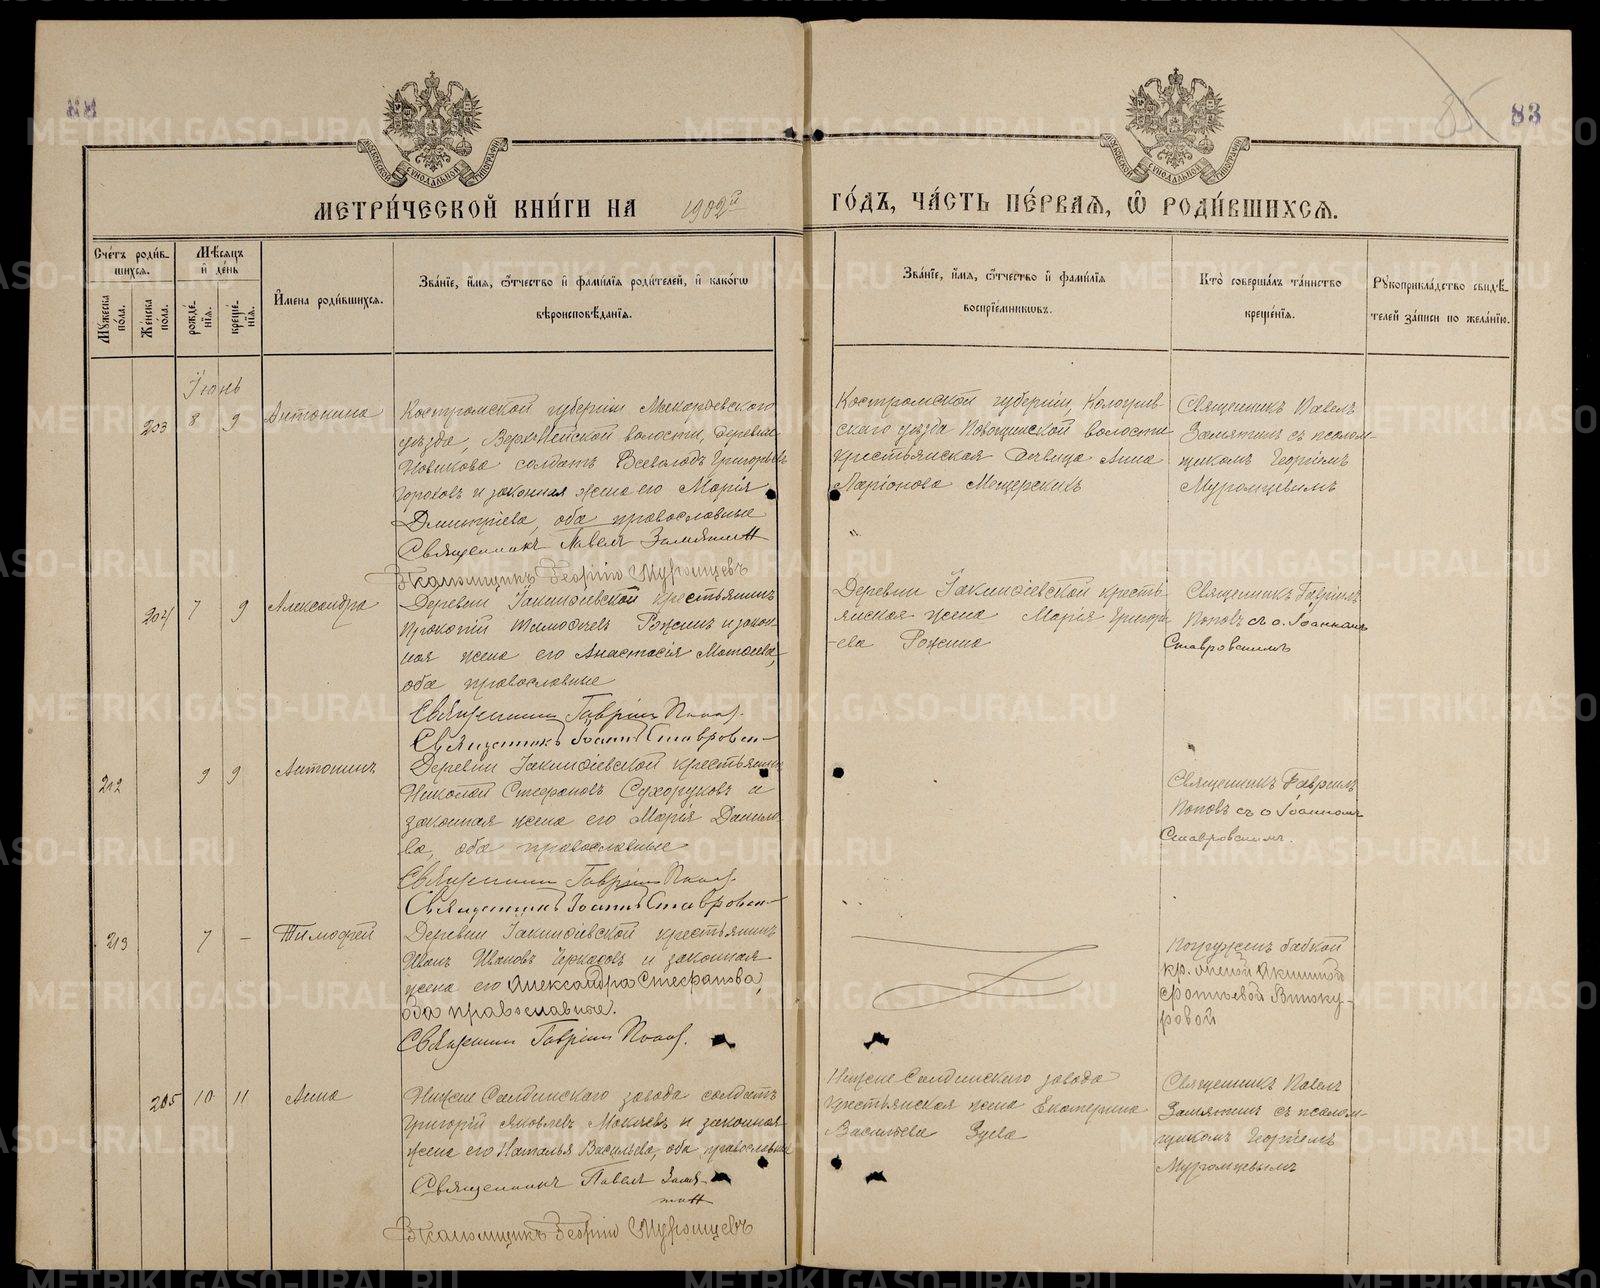 88
35
83
МОСКОВСКОЙ СУНОДАЛЬНОЙ ТИПОГРАФІИ
МОСКОВСКОЙ СУНОДАЛЬНОЙ ТИПОГРАФІИ
МЕТРИ́ЧЕСКОЙ КНИ́ГИ НА 1902й ГО́ДЪ, ЧА́СТЬ ПЕ́РВАѦ, Ѡ РОДИ́ВШИХСѦ.
Сче́тъ роди́в-
шихсѧ.
Мꙋ́жеска по́ла.
Же́нска по́ла.
Мѣ́сѧцъ
и де́нь
рожде́-
нїѧ.
креще́-
нїѧ.
И́мена роди́вшихсѧ.
Зва́нїе, и́мѧ, ѻ́тчество и фами́лїѧ роди́телей, и како́гѡ
вѣроисповѣ́данїѧ.
Зва́нїе, и́мѧ, ѻ́тчество и фами́лїѧ
воспрїе́мникѡвъ.
Кто̀ соверша́лъ та́инство
креще́нїѧ.
Рꙋкоприкла́дство свидѣ́-
телей за́писи по жела́нїю.
Іюнь
203
8
9
Антонина
Костромской губерніи Макарьевскаго
уѣзда, Верх-Нейской волости, деревни
Новикова солдатъ Всеволодъ Григорьевъ
Гороховъ и законная жена его Марія
Дмитріева, оба православные
Священникъ Павелъ Замятин
Псаломщикъ Георгій Муромцевъ
Костромской губерніи, Кологрив-
скаго уѣзда волости
крестьянская дѣвица Анна
Ларіонова Мещерскихъ
Священникъ Павелъ
Замятинъ съ псалом-
щикомъ Георгіемъ
Муромцевымъ
204
7
9
Александра
Деревни Іакинѳіевской крестьянинъ
Прокопій Тимофеевъ Рожинъ и закон-
ная жена его Анастасія Матѳеева,
оба православные
Священникъ Гавріилъ Попов.
Священникъ Іоаннъ Ставровск
Деревни Іакинѳіевской кресть-
янская жена Марія Григорь-
ева Рожина
Священникъ Гавріилъ
Поповъ съ о. Іоанномъ
Ставровскимъ
212
9
9
Антонинъ
Деревни Іакинѳіевской крестьянинъ
Николай Стефановъ Сухоруковъ и
законная жена его Марія Данило-
ва, оба православные
Священникъ Гавріилъ Попов.
Священникъ Іоаннъ Ставровск
Священникъ Гавріилъ
Поповъ съ о Іоанномъ
Ставровскимъ.
213
7
–
Тимофей
Деревни Іакинѳіевской крестьянинъ
Иванъ Ивановъ Черкасовъ и законная
жена его Александра Стефанова,
оба православные.
Священникъ Гавріилъ Попов.
Погружен бабкой
кр. женой Акилиной
Фотіевой Виноку-
ровой
205
10
11
Анна
Нижне Салдинскаго завода солдатъ
Григорій Яковлевъ Мокѣевъ и законная
жена его Наталья Васильева, оба православные
Священникъ Павелъ Замя-
тин
Псаломщикъ Георгій Муромцевъ
Нижне Салдинскаго завода
крестьянская жена Екатерина
Васильева Зуева
Священникъ Павелъ
Замятинъ съ псалом-
щикомъ Георгіемъ
Муромцевымъ
METRIKI.GASO-URAL.RU